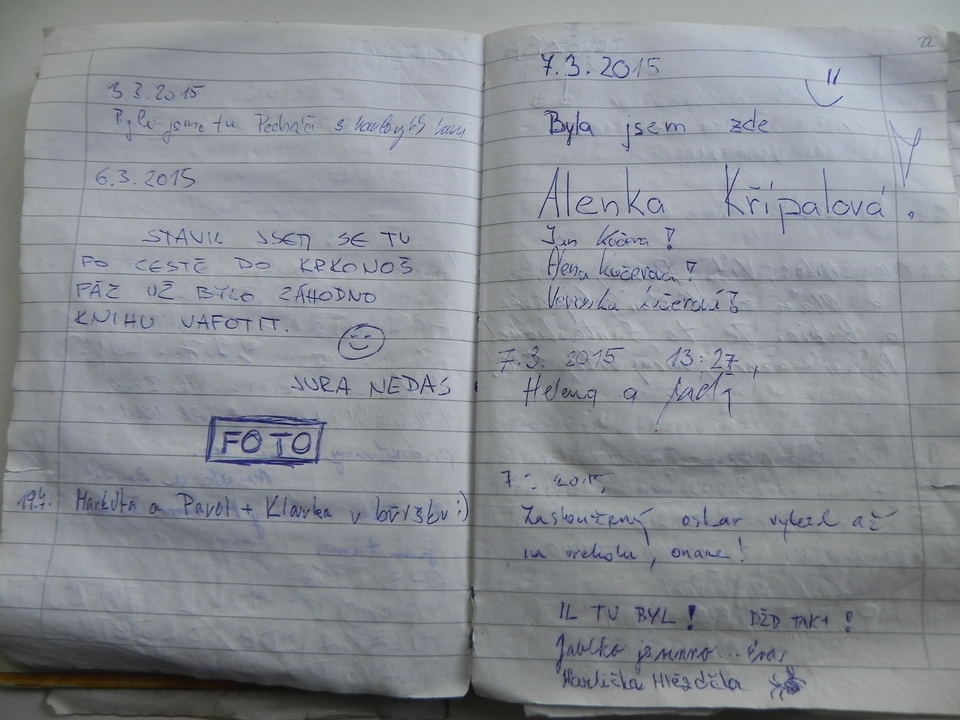 3.3.2015
Byli jsme tu Pecháči s
6.3.2015
STAVIL JSEM SE TU
PO CESTĚ DO KRKONOŠ
PÁČ UŽ BYLO ZÁHODNO
KNIHU NAFOTIT.
JURA NEDAS
FOTO
19.4. Markéta a Pavel + Klárka v bříšku :)
22
7.3.2015
Byla jsem zde
Alenka Křípalová.
Jan Kučera!
Alena Kučerová!
Veronika Kučerová!
7.3.2015 13:27,
Helena a
7.3.2015,
Zasloužený oskar vylezl až
na vrcholu, oname!
IL TU BYL! DĚD TAKY!
Jablko jasunno..
Hvězdička